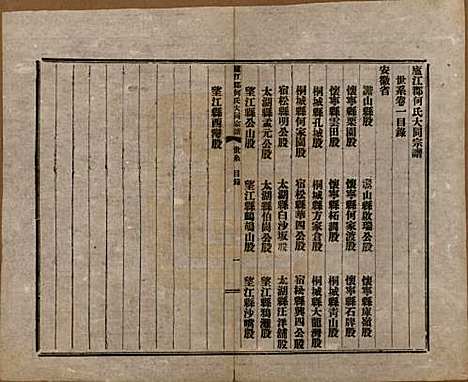 廬江郡何氏大同宗譜
世系卷一目錄
安徽省
潛山縣股
潛山縣啟瑞公股
懷寧縣庫嶺股
懷寧縣栗園股
懷寧縣何家渡股
懷寧縣石牌股
懷寧縣雲田股
懷寧縣柘澗股
桐城縣青山股
桐城縣孔城股
桐城縣方家倉股
桐城縣大龍灣股
桐城縣何家園股
宿松縣華四公股
宿松縣興四公股
宿松縣明公股
太湖縣白沙坂股
太湖縣汪洋舖股
太湖縣孟元公股
太湖縣伯崗公股
望江縣鴉灘股
望江縣公山股
望江縣鵝鴣山股
望江縣沙嘴股
廬江郡何氏大同宗譜 世系 目錄 一
望江縣西灣股